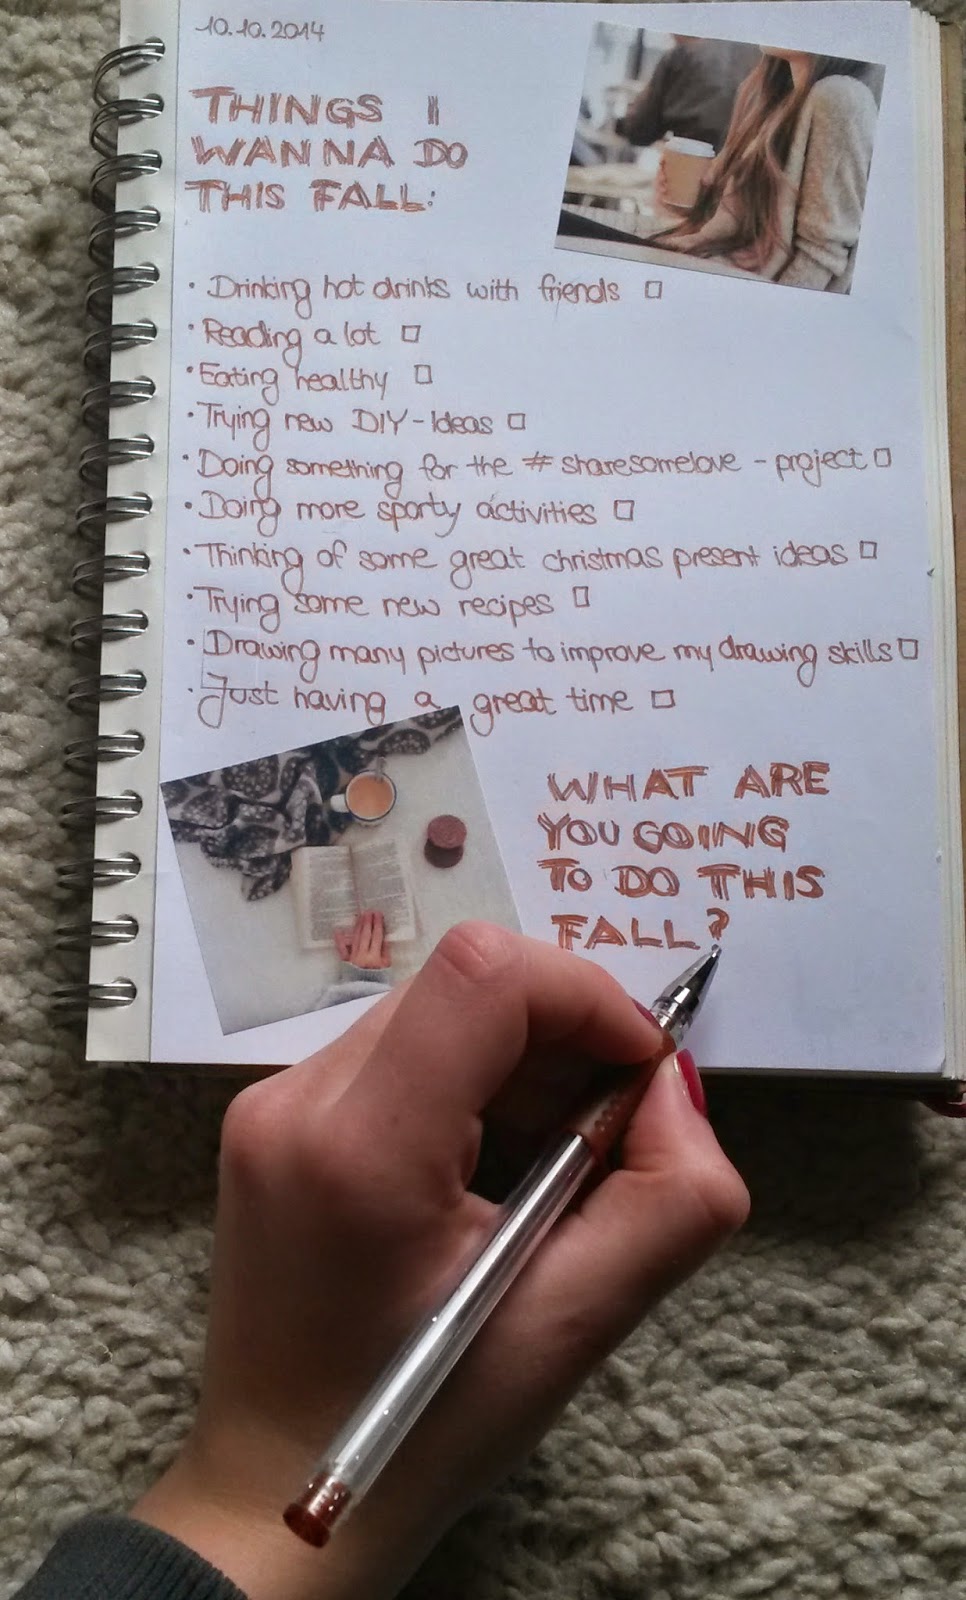 10.10.2014
THINGS I
WANNA DO
THIS FALL:
• Drinking hot drinks with friends □
• Reading a lot □
• Eating healthy □
• Trying new DIY-Ideas □
• Doing something for the #sharesomelove - project □
• Doing more sporty activities □
• Thinking of some great christmas present ideas □
• Trying some new recipes □
• Drawing many pictures to improve my drawing skills □
• Just having a great time □
WHAT ARE
YOU GOING
TO DO THIS
FALL?